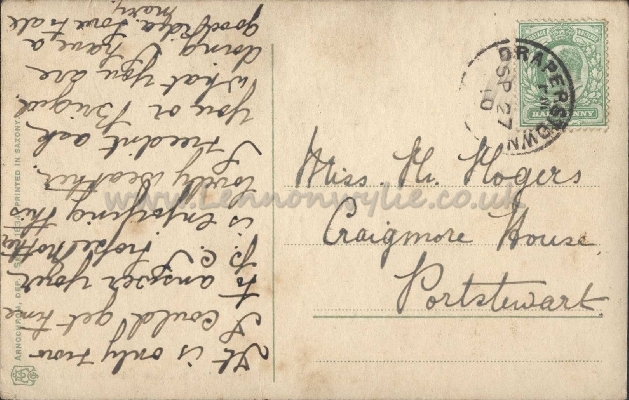 It is only now
I could get time
to answer your
P.C. I hope Mother
is enjoying this
lovely weather.
I needn't ask
you or Briged
what you are
doing I have a
good idea. Love to all
Mary
DRAPERSTOWN
SP 27
10
POSTAGE REVENUE
HALFPENNY
Miss. M. Mogers
Craigmore House,
Portstewart.
PRINTED IN SAXONY
www.Lennonwylie.co.uk